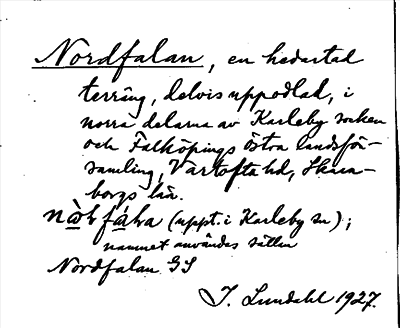 Nordfalan, en hedartad
terräng, delvis uppodlad, i
norra delarna av Karleby socken
och Falköpings östra landsför-
samling, Vartofta hd, Skara-
borgs län.
(uppt. i Karleby sn);
namnet användes sällan
Nordfalan GS
J. Lundahl 1927.